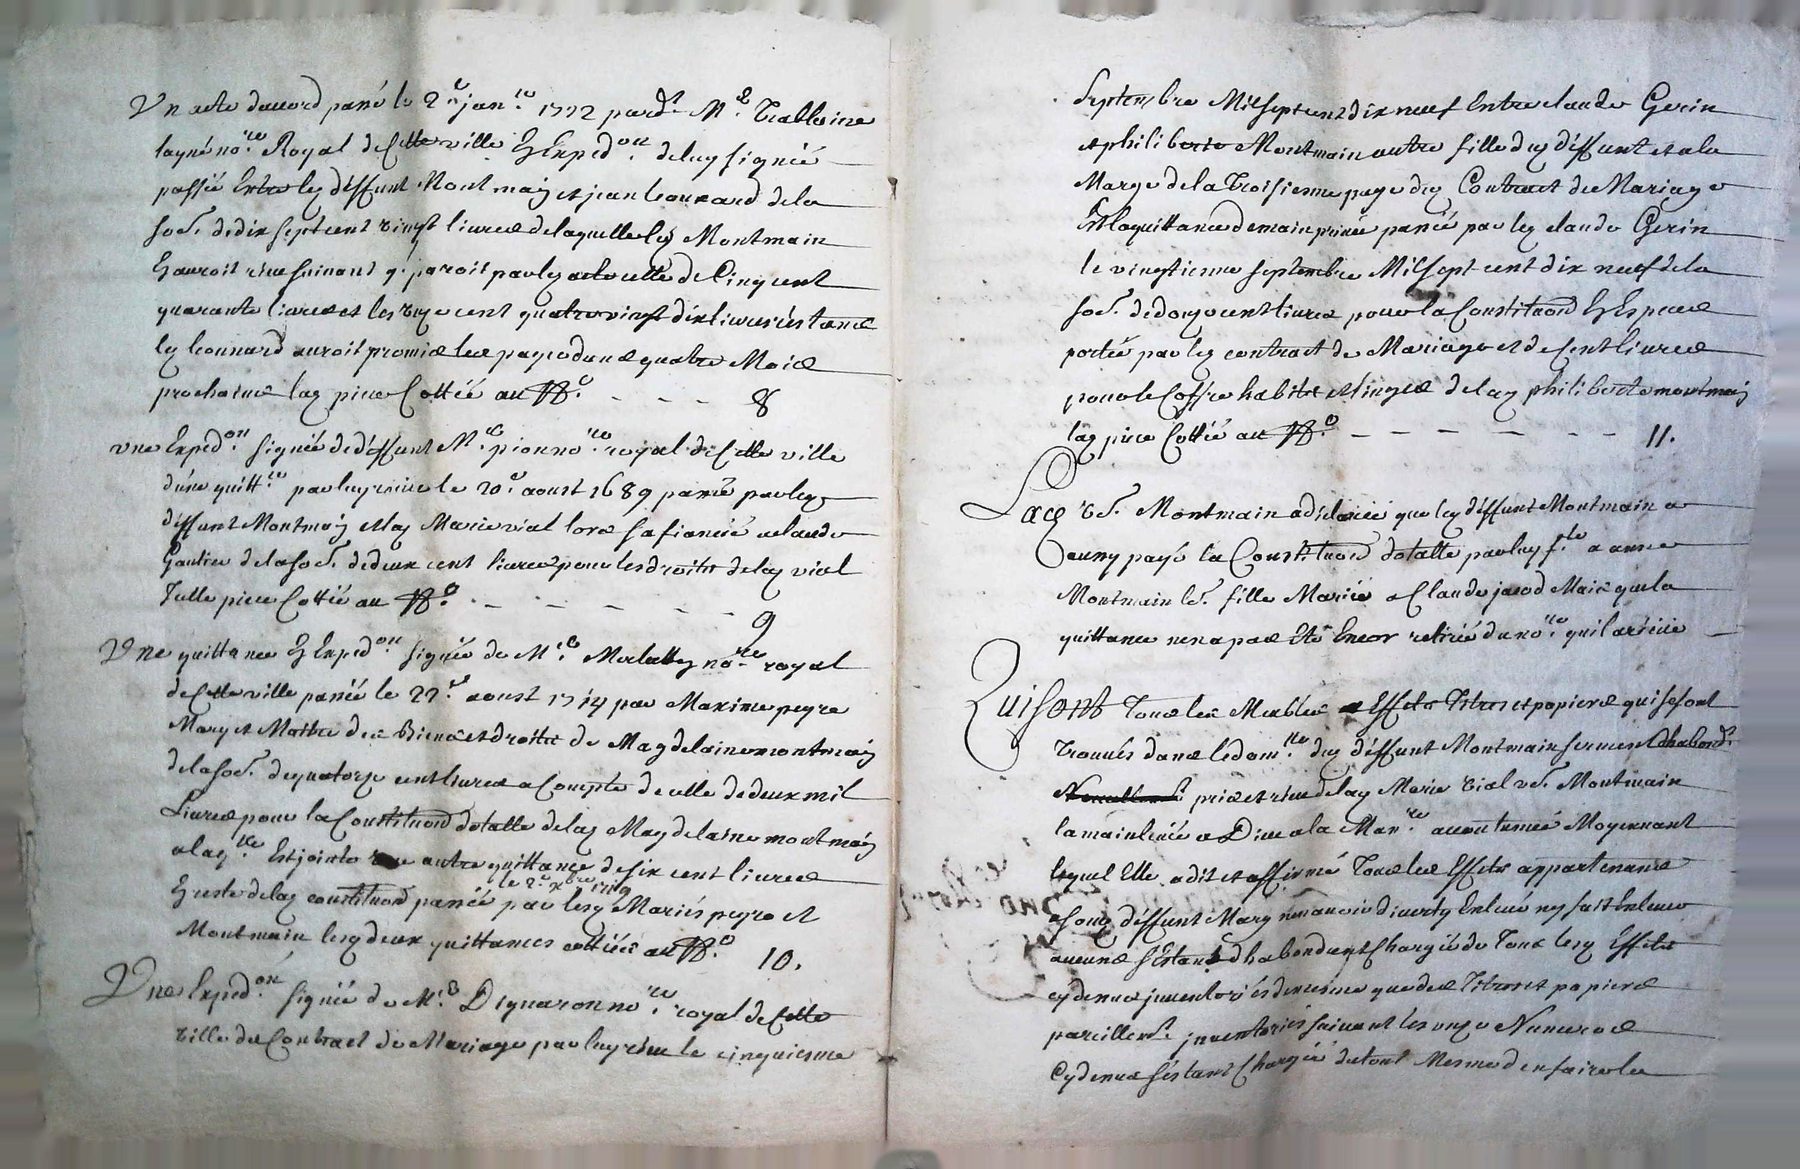 Un acte daccord passé le 2e janre 1712 pardt Me Trablaine
layné nore Royal de Cette ville & Expedon. deluy signée
passée Entre led deffunt Montmain et jean Leonnard dela
so.e de dix sept cent vingt livres delaquelle led Montmain
quarante livres et les onze cent quatre vingt dix livres restants
led Leonnard auroit promis les payer dans quatre Mois
prochains lad piece Cottée au No. - - - - 8
une Expedon. signée de deffunt Me. pion nore. royal de Cette ville
dune quittce par luy receue le 20e aoust 1689 passée par led
deffunt Montmain et lad Marie vial lors sa fiancée a claude
Gautier de la so.e de deux cent livres pour les droits delad vial
Icelle piece Cottée au No. - - - - - - 9
Une quittance & Expedon signée de Me nore royal
de Cette ville passée le 22e aoust 1714 par Maxime peyre
Mary et Maitre des Biens et droits de Magdelaine montmain
de la so.e de quatorze cent livres a Compte de celle de deux mil
Livres pour la Constituon dotalle delad Magdelaine montmain
a laqlle Est jointe une autre quittance de six cent livres
le 2e xbre 1719
& reste delad constituon passée par lesd Mariés peyre et
Montmain lesd deux quittances cottées au No. 10.
Une Expedon. signée de Me Dignaron nore. royal de Cette
ville du Contract de Mariage par luy receu le cinquiesme
septembre Mil sept cent dix neuf Entre claude Gerin
et philiberte Montmain autre fille dud deffunt et a la
Marge de la Troisieme page dud Contract de Mariage
Est la quittance de main privée passée par led claude Gerin
le vingtieme septembre Mil sept cent dix neuf de la
so.e de douze cent livres pour la Constituon & Especes
portée par led contract de Mariage et de Cent livres
pour le Coffre habits et linges delad philiberte montmain
lad piece Cottée au No. - - - - - - - 11.
Lad ve. Montmain a declaré que led deffunt Montmain a
aussy payé la Constituon dotalle par luy fte a anne
Montmain led. fille Mariée a Claude jacod Mais que la
quittance nen a pas Eté Encor retirée du nore. qui la receue
Qui sont Tous les Meubles Effets Titres et papiers qui se sont
Trouvés dans le domlle. dud deffunt Montmain serment dhabondt
pris et receu delad Marie vial ve. Montmain
la main levée a Dieu a la Manre accoutumée Moyennant
lequel Elle a dit et affirmé Tous les Effets appartenans
a sond deffunt Mary nen avoir diverty Enlevé ny fait Enlever
aucuns sEstant dhabondant Chargée de Tous lesd Effets
cydevant inventoriés de mesme que des Titres et papiers
pareillemt. inventories suivant les onze Numeros
Cydevant sestant Chargée du tout Mesme den faire les